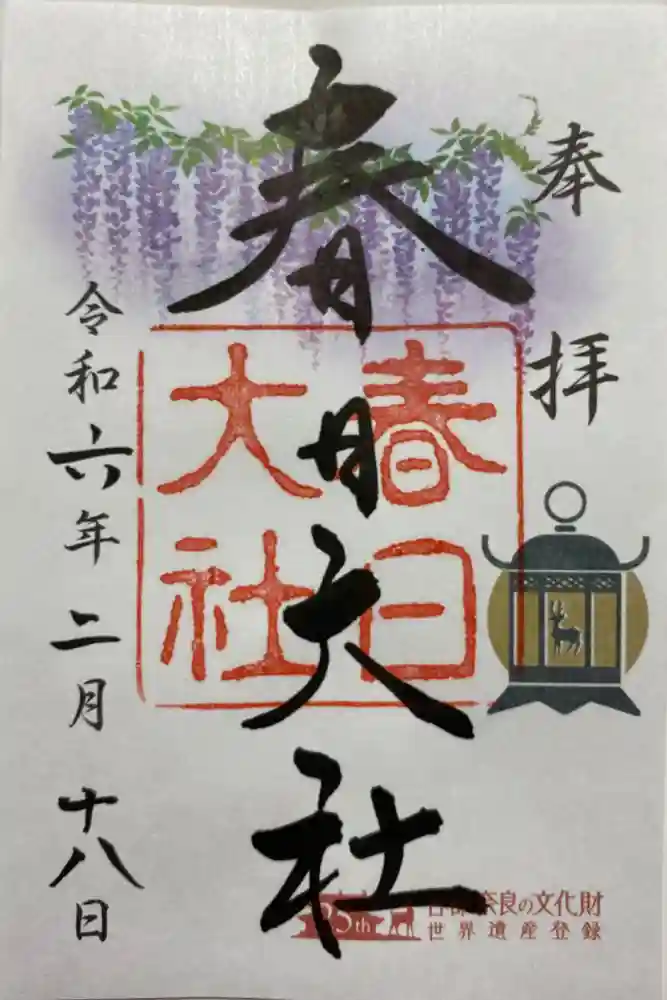 奉拝
春日大社
春日
大社
令和六年二月十八日
25th
古都奈良の文化財
世界遺産登録